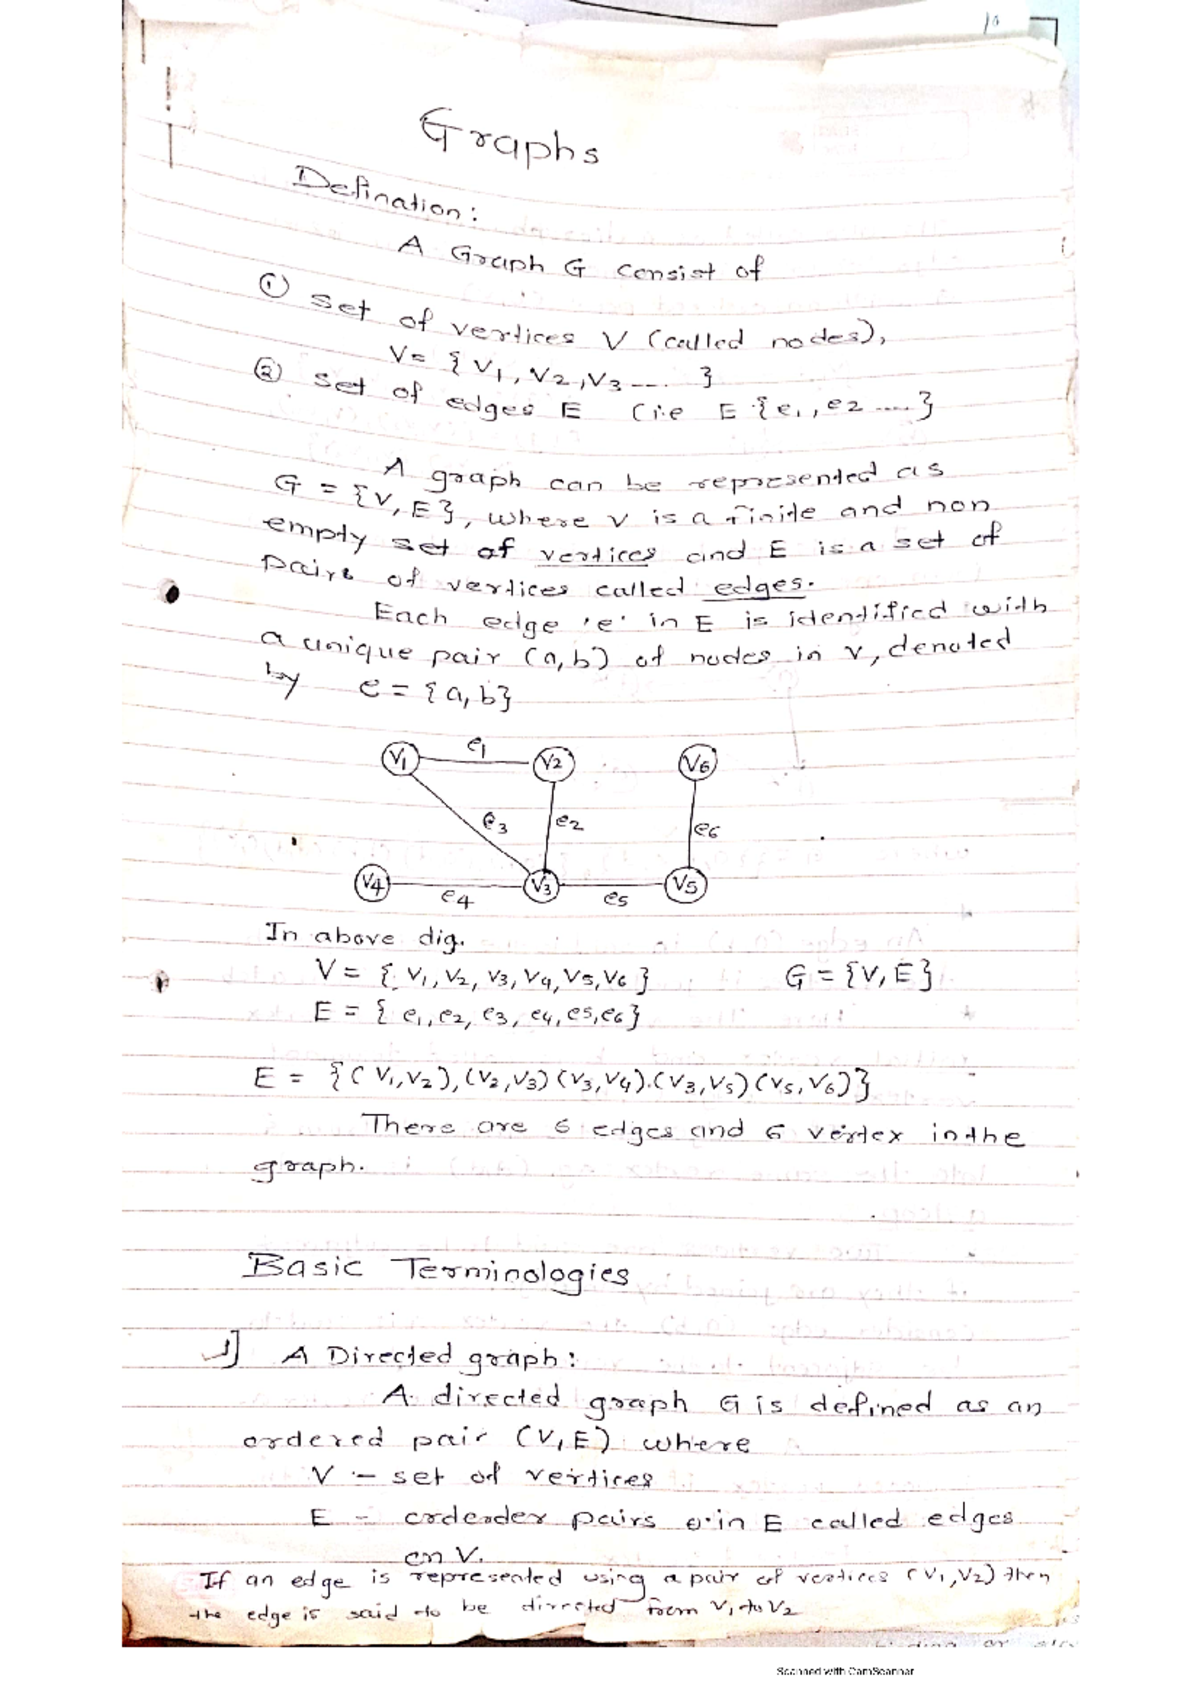 10
Graphs
Defination:
A Graph G consist of
① set of vertices V (called nodes),
V= {V1, V2, V3 .... }
② set of edges E (i.e E {e1, e2 ....}
A graph can be represented as
G = {V, E}, where V is a finite and non
empty set of vertices and E is a set of
pairs of vertices called edges.
Each edge 'e' in E is identified with
a unique pair (a,b) of nodes in V, denoted
by e = {a, b}
V1 e1 V2 V6
e3 e2 e6
V4 e4 V3 e5 V5
In above dig.
V = { V1, V2, V3, V4, V5, V6 } G = {V, E}
E = { e1, e2, e3, e4, e5, e6}
E = {( V1, V2), (V2, V3) (V3, V4).(V3, V5) (V5, V6)}
There are 6 edges and 6 vertex in the
graph.
Basic Terminologies
1] A Directed graph:
A directed graph G is defined as an
ordered pair (V, E) where
V - set of vertices
E - pairs in E called edges
on V.
If an edge is represented using a pair of vertices (V1, V2) then
the edge is said to be directed from V1 to V2
Scanned with CamScanner